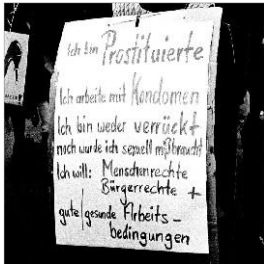 Ich bin Prostituierte
Ich arbeite mit Kondomen
Ich bin weder verrückt
noch wurde ich sexuell mißbraucht
Ich will: Menschenrechte
Bürgerrechte +
gute / gesunde Arbeits-
bedingungen